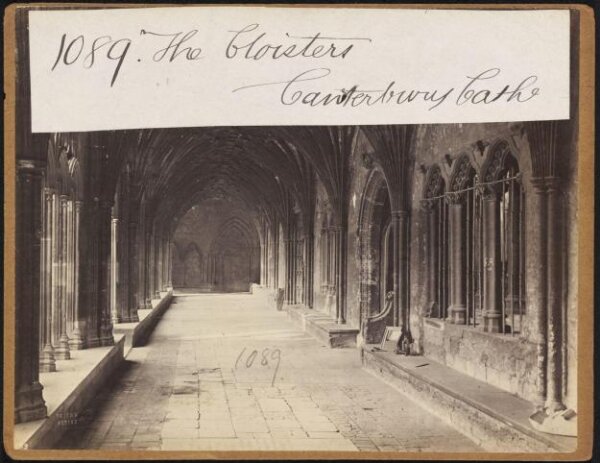 1089. The Cloisters
Canterbury Cathe
1089